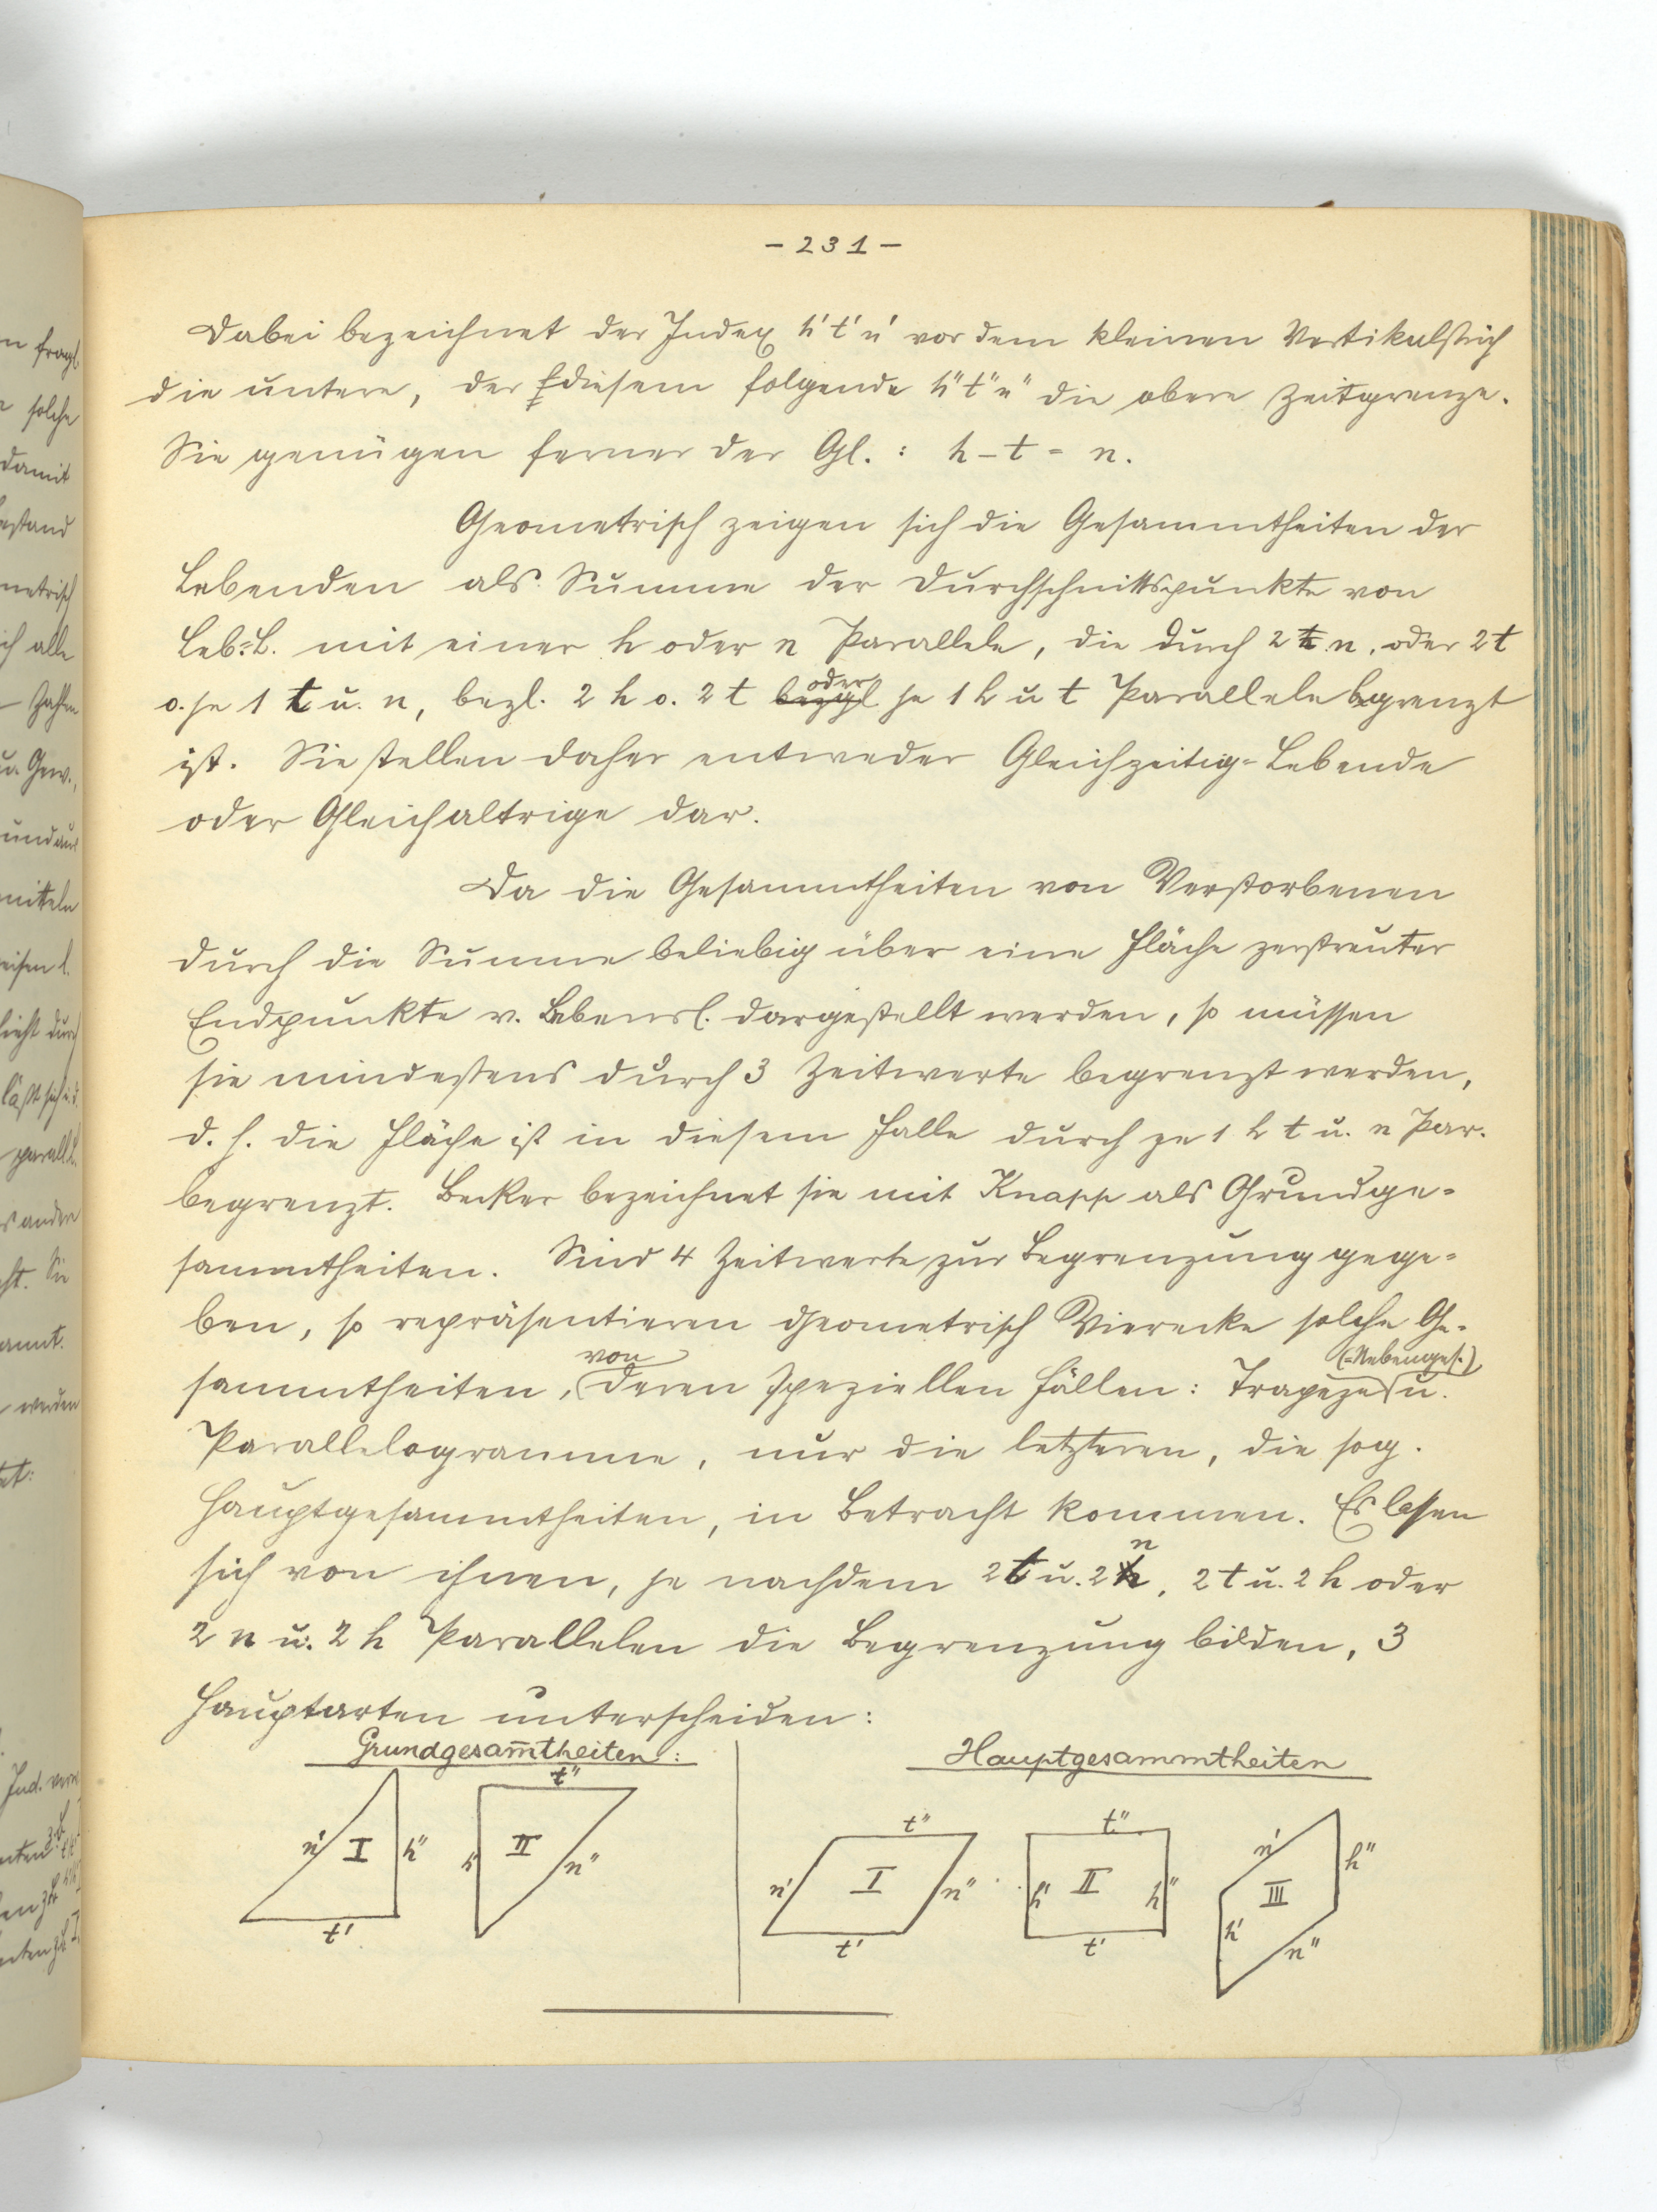 - 231 -
Dabei bezeichnet der Index h' t' n' vor dem kleinen Vertikalstrich
die untere, der diesem folgende h" t" n" die obere Zeitgrenze.
Sie genügen ferner der Gl.: h - t = n.
Geometrisch zeigen sich die Gesammtheiten der
Lebenden als Summe der Durchschnittspunkte von
Leb=L. mit einer h oder n Parallele, die durch 2 n. oder 2 t
o. je 1 t u. n, bezl. 2 h o. 2 t bezgl oder je 1 h u t Parallele begrenzt
ist. Sie stellen daher entweder Gleichzeitig=Lebende
oder Gleichaltrige dar.
Da die Gesammtheiten von Verstorbenen
durch die Summe beliebig über eine Fläche zerstreuter
Endpunkte v. Lebensl. dargestellt werden, so müssen
sie mindestens durch 3 Zeitwerte begrenzt werden,
d. h. die Fläche ist in diesem Falle durch je 1 h t u. n Par.
begrenzt. Becker bezeichnet sie mit Knapp als Grundge=
sammtheiten. Sind 4 Zeitwerte zur Begrenzung gege=
ben, so repräsentieren geometrisch Vierecke solche Ge=
sammtheiten, von deren speziellen Fällen: Trapeze (=Nebenges.) u.
Parallelogramme, nur die letzteren, die sog.
Hauptgesammtheiten, in Betracht kommen. Es lassen
sich von ihnen, je nachdem 2 t u. 2 n, 2 t u. 2 h oder
2 n u. 2 h Parallelen die Begrenzung bilden, 3
Hauptarten unterscheiden:
Grundgesam̅theiten:
Hauptgesammtheiten
n' I h" t'
t" h' II n"
t" n' I n" t'
t" h' II h" t'
n' h" III h' n"